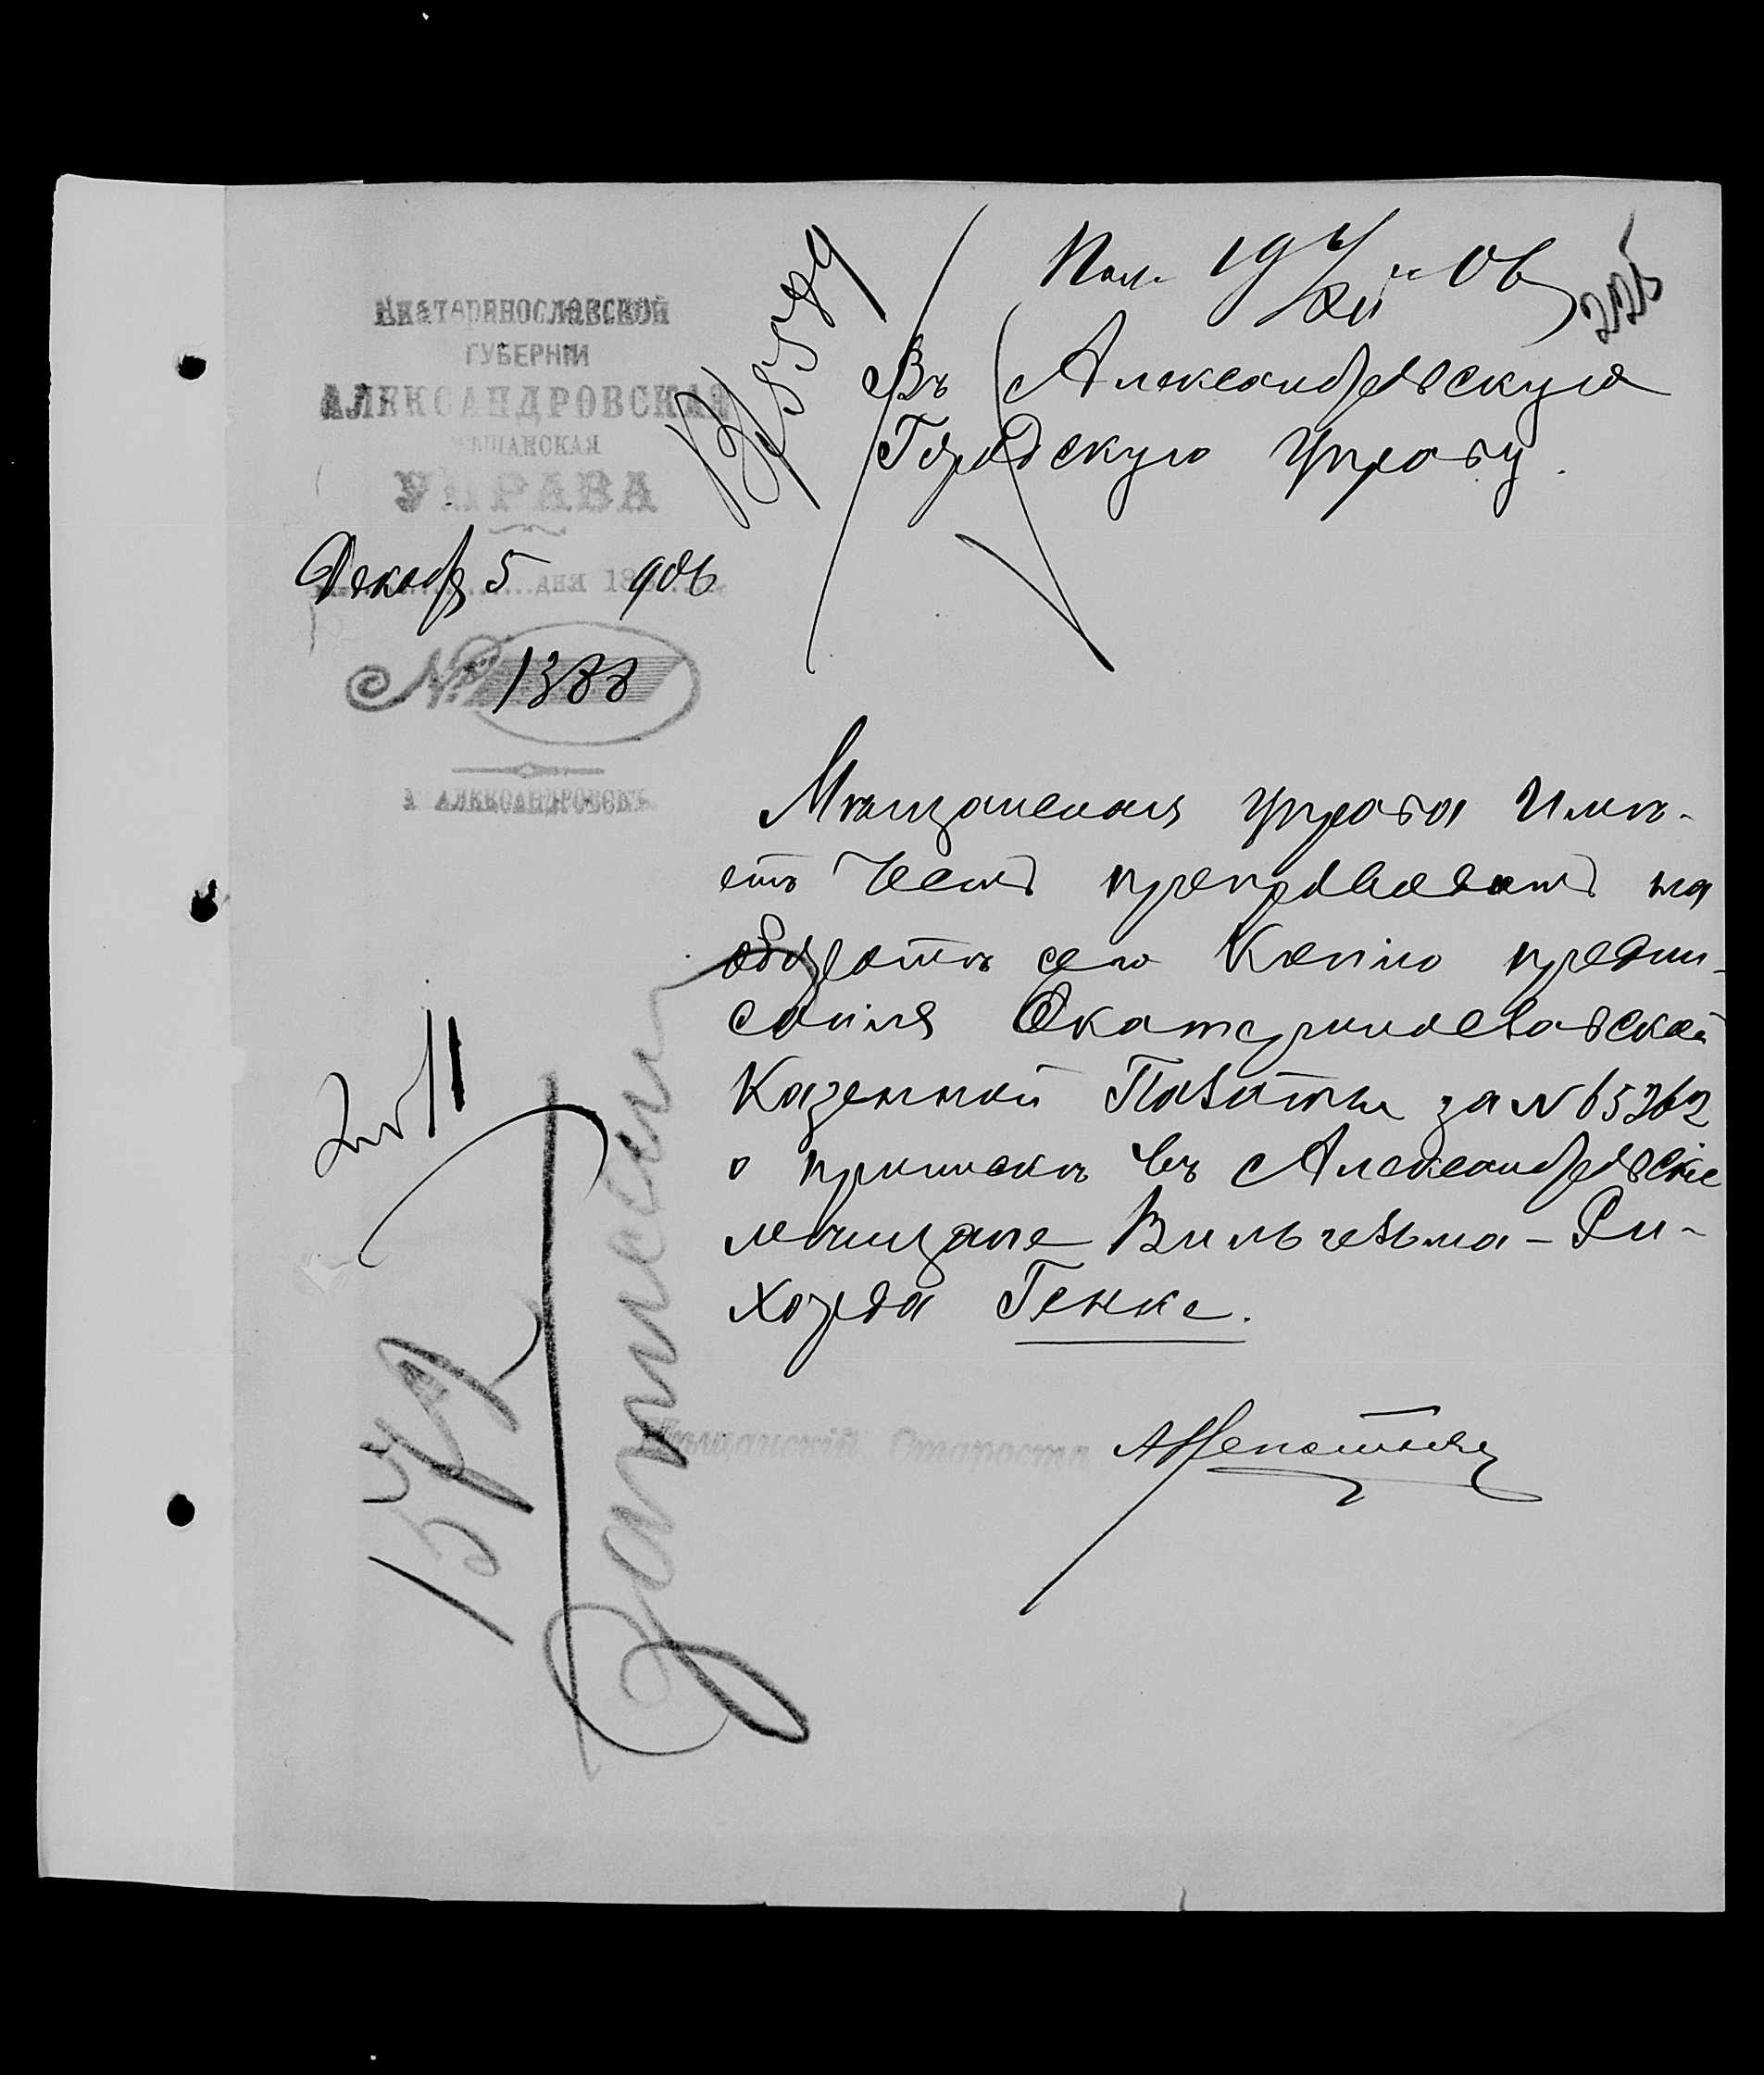 Екатеринославской
ГУБЕРНІИ
АЛЕКСАНДРОВСКАЯ
МѢЩАНСКАЯ
УПРАВА
Декабр 5 дня 1906
№ 1388
Г. АЛЕКСАНДРОВСКЪ
Пол. 19 4/XII 06
225
Въ Александровскую
Городскую Управу.
Мѣщанская Управа Имѣ-
етъ честь препроводить на
оборотѣ сего Копію предпи-
санія Екатеринославской
Казенной Палаты за № 65262
о припискѣ въ Александровскіе
мѣщане Вильгельма - Ри-
харда Генке.
Мѣщанскій Староста